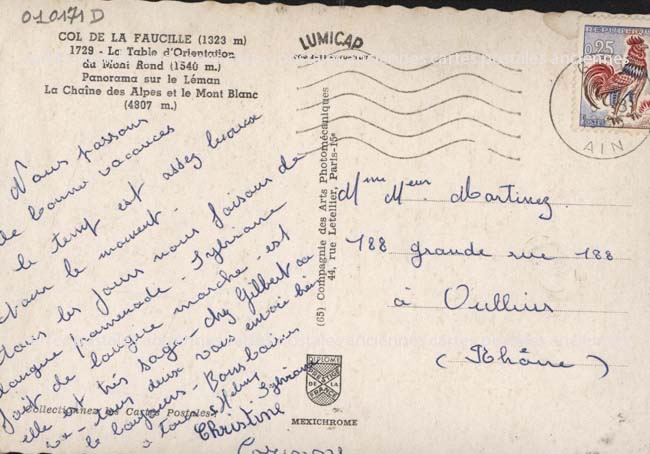 010171D
COL DE LA FAUCILLE (1323 m)
1729 - La Table d'Orientation
du Mont Rond (1540 m.)
Panorama sur le Léman
La Chaîne des Alpes et le Mont Blanc
(4807 m.)
Nous passons
de bonne vacances
le temp est assez
pour le moment.
tous les jours nous faisons de
longue promenade. Sylviane
fait de longue marche. est
elle est très sage. chez Gilbert
tous deux vous envoie
le bonjours. Bons baisers
à tous
Sylviane
Christine
Collectionnez les Cartes Postales
LUMICAP
(65) Compagnie des Arts Photomécaniques
44, rue Letellier, Paris-15e
DIPLOME
PRESTIGE
DE LA
FRANCE
MEXICHROME
0,25
POSTES
AIN
Mme Meur Martinez
188 grande rue 188
à Oullins
(Rhône)